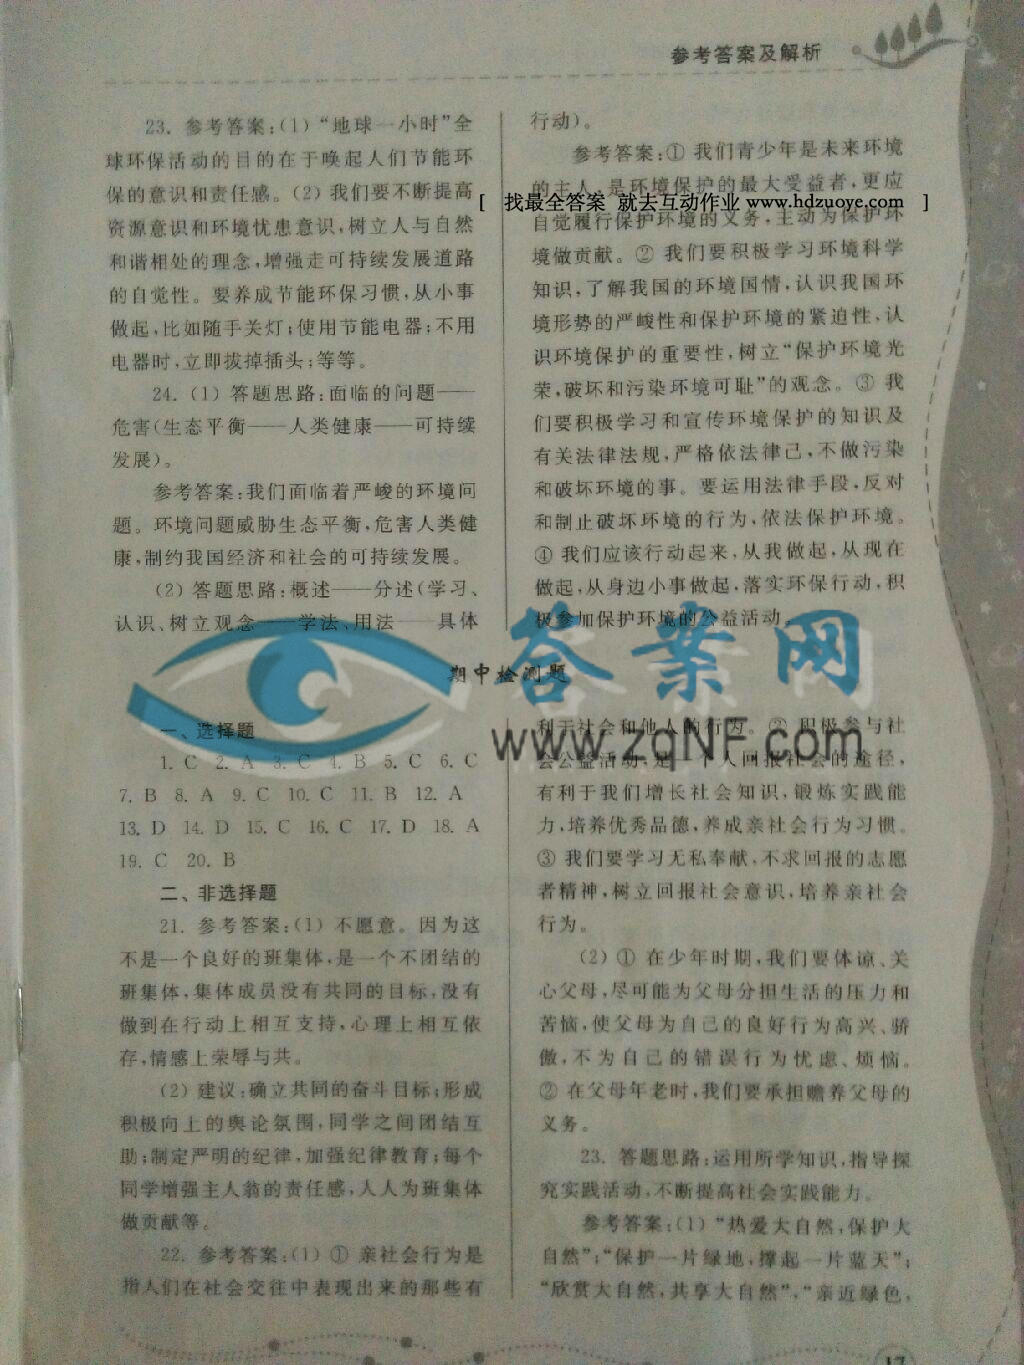 参考答案及解析
23. 参考答案:(1)“地球一小时”全
球环保活动的目的在于唤起人们节能环
保的意识和责任感。(2) 我们要不断提高
资源意识和环境忧患意识,树立人与自然
和谐相处的理念,增强走可持续发展道路
的自觉性。要养成节能环保习惯,从小事
做起,比如随手关灯;使用节能电器;不用
电器时,立即拔掉插头;等等。
24. (1) 答题思路:面临的问题——
危害(生态平衡——人类健康——可持续
发展)。
参考答案:我们面临着严峻的环境问
题。环境问题威胁生态平衡,危害人类健
康,制约我国经济和社会的可持续发展。
(2) 答题思路:概述——分述(学习、
认识、树立观念——学法、用法——具体
行动)。
参考答案:① 我们青少年是未来环境
的主人,是环境保护的最大受益者,更应
[ 找最全答案 就去互动作业 www.hdzuoye.com ]
自觉履行保护环境的义务,主动为保护环
境做贡献。② 我们要积极学习环境科学
知识,了解我国的环境国情,认识我国环
境形势的严峻性和保护环境的紧迫性,认
识环境保护的重要性,树立“保护环境光
荣,破坏和污染环境可耻”的观念。③ 我
们要积极学习和宣传环境保护的知识及
有关法律法规,严格依法律己,不做污染
和破坏环境的事。要运用法律手段,反对
和制止破坏环境的行为,依法保护环境。
④ 我们应该行动起来,从我做起,从现在
做起,从身边小事做起,落实环保行动,积
极参加保护环境的公益活动。
答案网
www.zqNF.com
期中检测题
一、选择题
1. C 2. A 3. C 4. B 5. C 6. C
7. B 8. A 9. C 10. C 11. B 12. A
13. D 14. D 15. C 16. C 17. D 18. A
19. C 20. B
二、非选择题
21. 参考答案:(1) 不愿意。因为这
不是一个良好的班集体,是一个不团结的
班集体,集体成员没有共同的目标,没有
做到在行动上相互支持,心理上相互依
存,情感上荣辱与共。
(2) 建议:确立共同的奋斗目标;形成
积极向上的舆论氛围,同学之间团结互
助;制定严明的纪律,加强纪律教育;每个
同学增强主人翁的责任感,人人为班集体
做贡献等。
22. 参考答案:(1) ① 亲社会行为是
指人们在社会交往中表现出来的那些有
利于社会和他人的行为。② 积极参与社
会公益活动,是一个人回报社会的途径,
有利于我们增长社会知识,锻炼实践能
力,培养优秀品德,养成亲社会行为习惯。
③ 我们要学习无私奉献,不求回报的志愿
者精神,树立回报社会意识,培养亲社会
行为。
(2) ① 在少年时期,我们要体谅、关
心父母,尽可能为父母分担生活的压力和
苦恼,使父母为自己的良好行为高兴、骄
傲,不为自己的错误行为忧虑、烦恼。
② 在父母年老时,我们要承担赡养父母的
义务。
23. 答题思路:运用所学知识,指导探
究实践活动,不断提高社会实践能力。
参考答案:(1)“热爱大自然,保护大
自然”;“保护一片绿地,撑起一片蓝天”;
“欣赏大自然,共享大自然”,“亲近绿色,
17